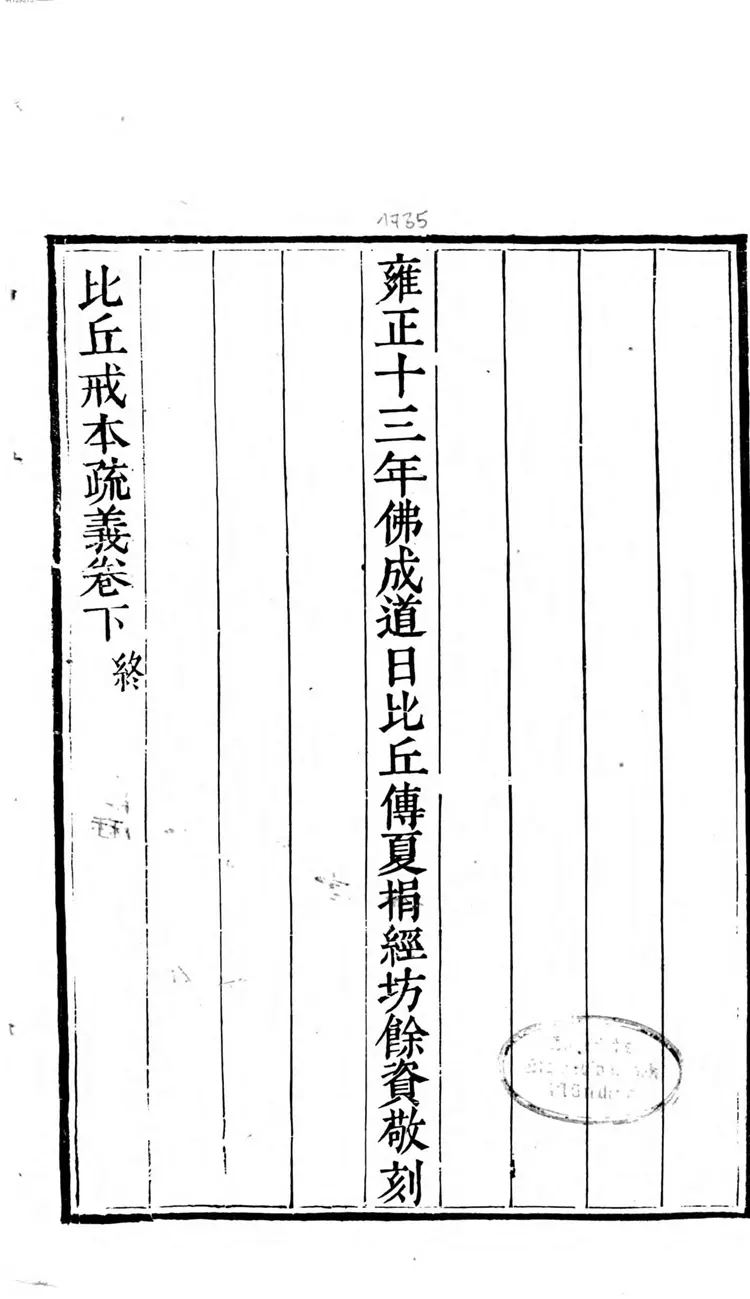 1735
雍正十三年佛成道日比丘傳夏捐經坊餘資敬刻
比丘戒本疏義卷下
終